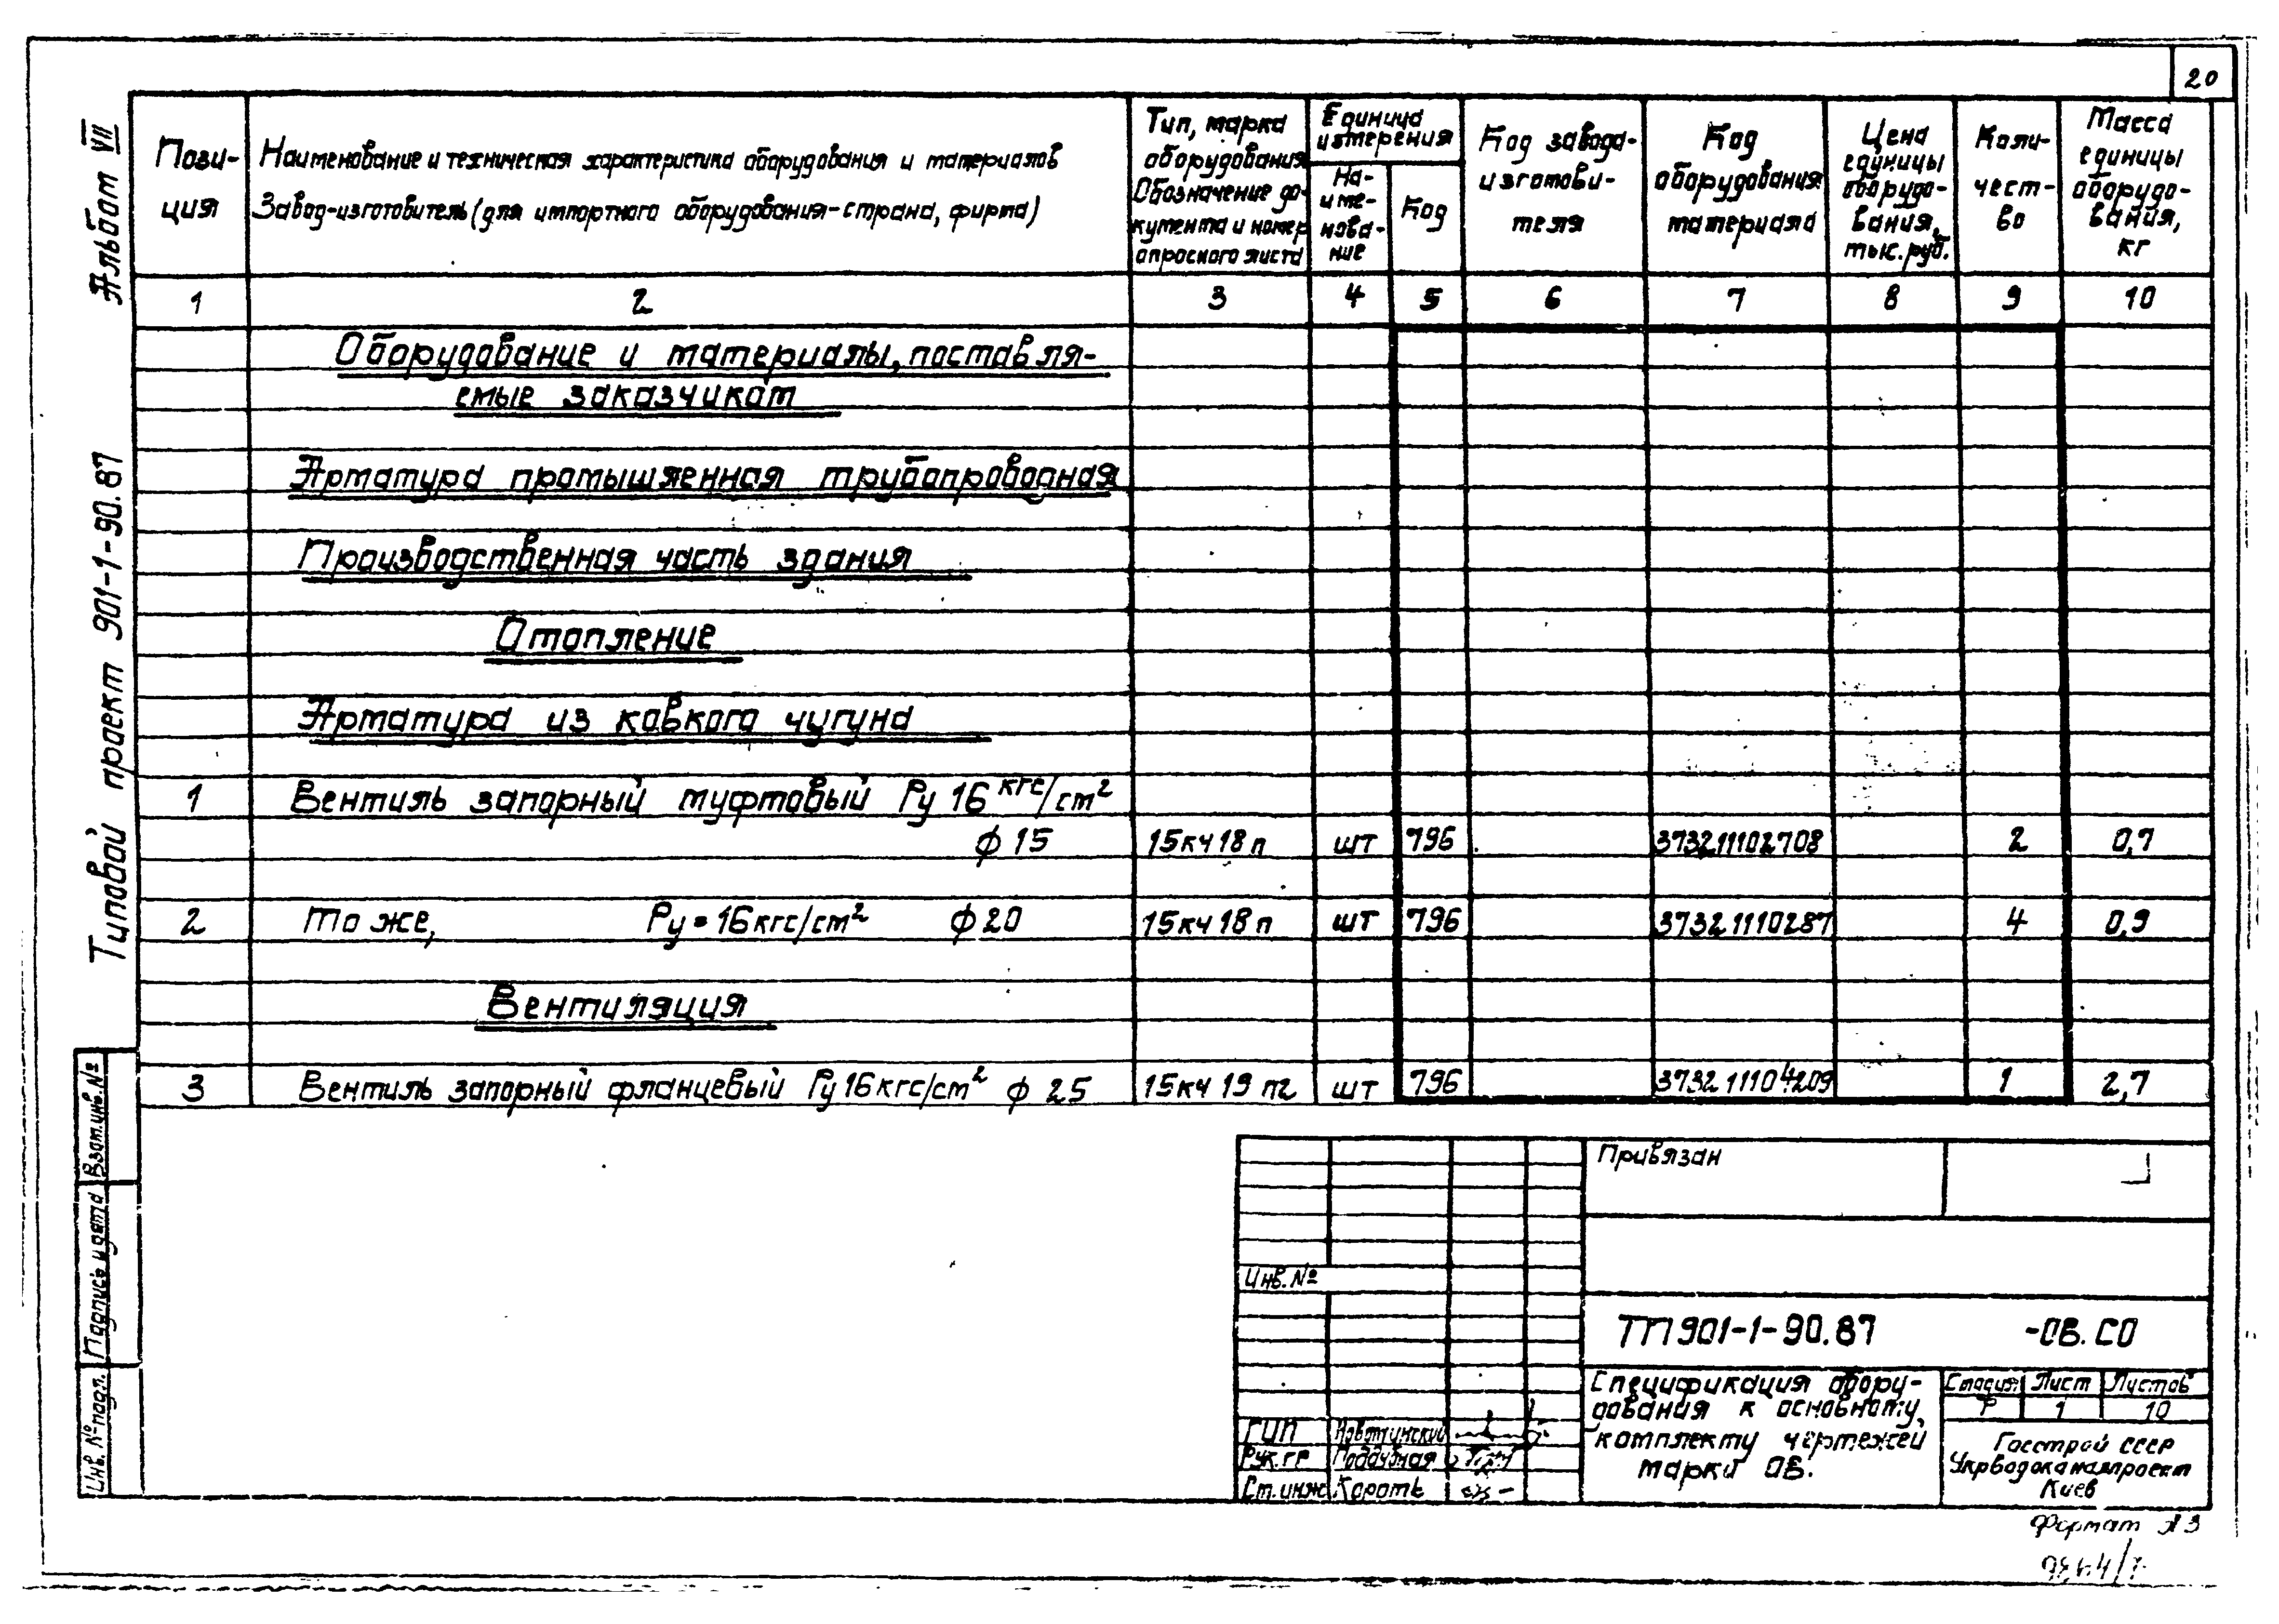 20
Альбом VII
Типовой проект 901-1-90.87
Пози-
ция
Наименование и техническая характеристика оборудования и материалов
Завод-изготовитель (для импортного оборудования-страна, фирма)
Тип, марка
оборудования
Обозначение до-
кумента и номер
опросного листа
Единица
измерения
На-
име-
нова-
ние
Код
Код завода-
изготови-
теля
Код
оборудования
материала
Цена
единицы
оборудо-
вания,
тыс. руб.
Коли-
чест-
во
Масса
единицы
оборудо-
вания,
кг
1 2 3 4 5 6 7 8 9 10
Оборудование и материалы, поставля-
емые заказчиком
Арматура промышленная трубопроводная
Производственная часть здания
Отопление
Арматура из ковкого чугуна
1 Вентиль запорный муфтовый Ру 16 кгс/см²
ф 15 15кч18п шт 796 373211102708 2 0,7
2 То же, Ру = 16 кгс/см² ф 20 15кч18п шт 796 37321110287 4 0,9
Вентиляция
3 Вентиль запорный фланцевый Ру 16 кгс/см² ф 25 15кч 19 п2 шт 796 373211104209 1 2,7
Взам.инв.№
Подпись и дата
Инв. № подл.
Привязан
Инв. №
ТП 901-1-90.87 -ОВ.СО
Спецификация обору-
дования к основному
комплекту чертежей
марки ОВ.
Стадия Лист Листов
Р 1 10
Госстрой СССР
Укрводоканалпроект
Киев
ГИП
Рук.гр Поддубная
Ст.инж Короть
Формат А3